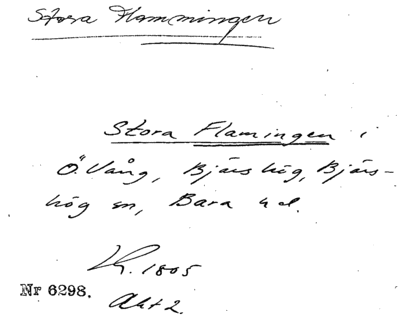 Stora Flammingen
Stora Flamingen i
Ö. Vång, Bjärshög, Bjärs-
hög sn, Bara hd.
Lk. 1805
Nr 6298. Akt 2.